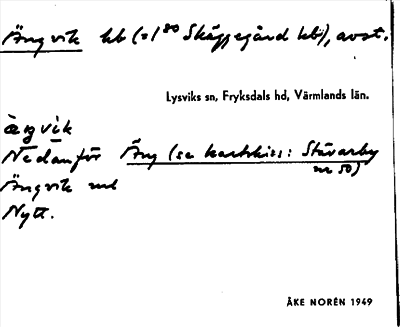 Ängvik hb (=1⁸⁰ Skäggegård hb), avst.
Lysviks sn, Fryksdals hd, Värmlands län.
Nedanför Äng (se kartskiss: Stävarby
nr 50)
Ängvik
Nytt.
ÅKE NORÉN 1949